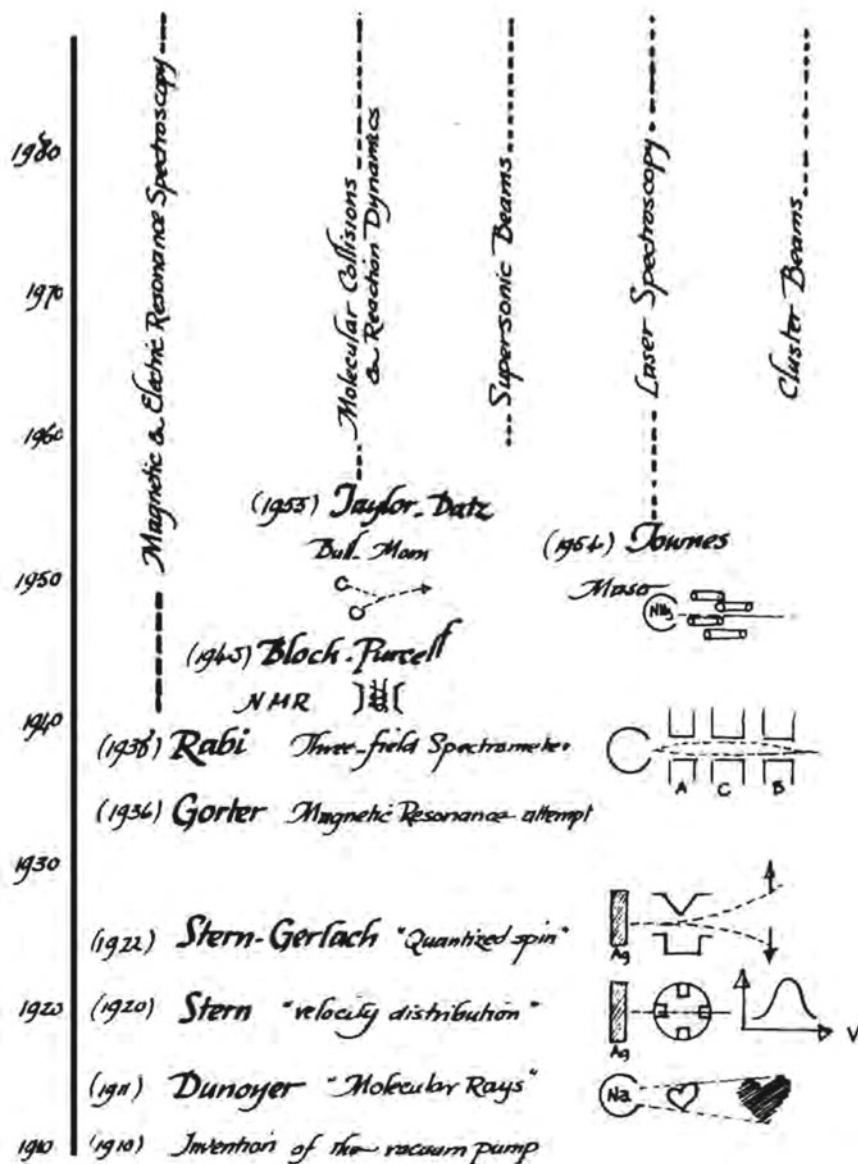 Magnetic & Electric Resonance Spectroscopy
Molecular Collisions
& Reaction Dynamics
Supersonic Beams
Laser Spectroscopy
Cluster Beams
1980
1970
1960
(1955) Taylor-Datz
(1954) Townes
Maser
NH3
1950
(1945) Bloch-Purcell
NMR
1940
(1938) Rabi Three-field Spectrometer
A C B
(1936) Gorter Magnetic Resonance attempt
1930
(1922) Stern-Gerlach "Quantized spin"
Ag
1920 (1920) Stern "velocity distribution"
Ag
V
(1911) Dunoyer "Molecular Rays"
Na
1910 (1910) Invention of the vacuum pump